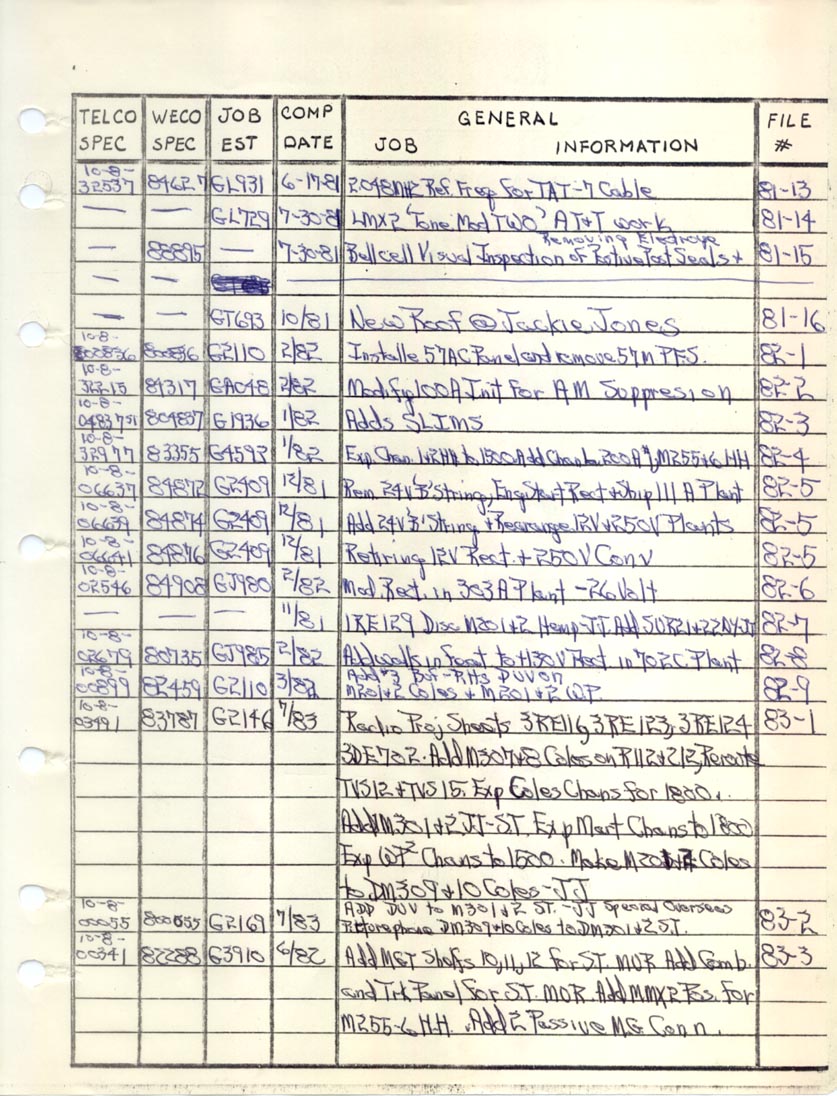 TELCO SPEC WECO SPEC JOB EST COMP DATE GENERAL JOB INFORMATION FILE #
10-8-
32537 84627 GL931 6-17-81 2.048MHz Ref. Freq. for TAT-7 Cable 81-13
— — GL729 7-30-81 LMX2 'Tone Mod TWO' AT&T work 81-14
Removing Electrolye
— 88895 — 7-30-81 Bellcell Visual Inspection of Postive Post Seals + 81-15
— —
— — GT693 10/81 New Roof @ Jackie Jones 81-16
10-8-
00836 800836 G2110 2/82 Installe 57AC Panel and remove 57M PFS. 82-1
10-8-
32215 84317 GA048 2/82 Modify 100A Init For AM Suppresion 82-2
10-8-
04837 804837 G1936 1/82 Adds SLIMS 82-3
10-8-
32977 83355 G4592 1/82 Exp Chan 1+2 HH to 1500. Add Chan 200A M255+6 HH 82-4
10-8-
06637 84872 G2409 12/81 Rem. 24V 'B' String, Eng Start Rect + Ship 111 A Plant 82-5
10-8-
06639 84874 G2409 12/81 Add 24V 'B' String + Rearrange 12V + 250V Plants 82-5
10-8-
06641 84876 G2409 12/81 Retiring 12V Rect. + 250V Conv 82-5
10-8-
02546 84908 GJ980 2/82 Mod. Rect. in 303A Plant -26 Volt 82-6
— — — 11/81 1RE129 Disc M201+2 Hemp-JJ. Add SVR21+22 82-7
10-8-
02679 80735 GJ985 2/82 Add walls in front to +130V Rect in 702C Plant 82-8
10-8-
00899 82459 G2110 3/82 Add #3 Buf-RHs DUV on
M201+2 Coles + M201+2 WP. 82-9
10-8-
03491 83787 G2146 7/83 Radio Proj Sheets 3RE116, 3RE123, 3RE124 83-1
3DE702. Add M307+8 Coles on R112+212, Reroute
TVS12 + TVS15. Exp Coles Chans for 1800.
Add M301+2 JJ-ST. Exp Mart Chans to 1800
Exp WP² Chans to 1500. Make M201+2 Coles
to DM309+10 Coles-JJ
10-8-
00055 800055 G2169 7/83 ADD DUV to M301+2 ST.-JJ Special Overseas
Picturephone DM309+10 Coles to DM301+2 ST. 83-2
10-8-
00341 82288 G3910 6/82 Add MGT Shelfs 10,11,12 for ST. MUR Add Comb. 83-3
and Trk Panel for ST. MOR. Add MMX2 Pos. for
M255-6 H.H. . Add 2 Passive MG Conn.